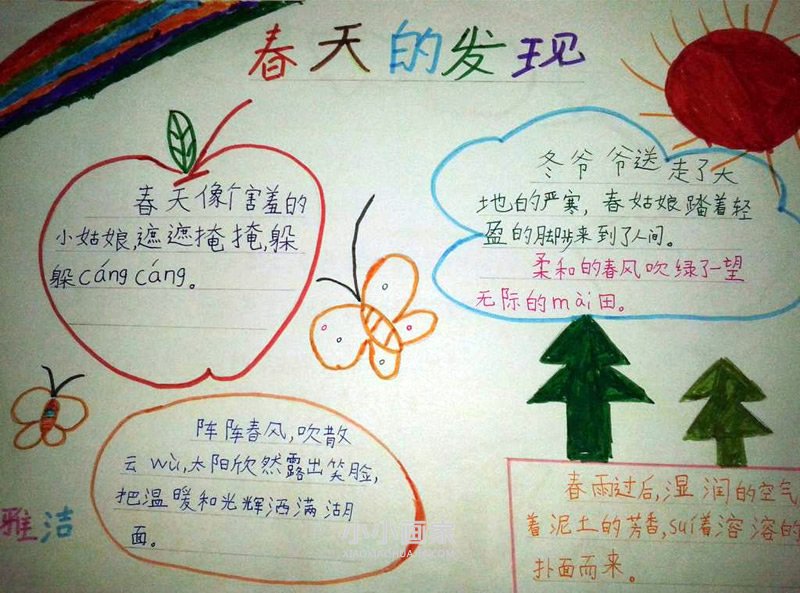 春天的发现
春天像个害羞的
小姑娘,遮遮掩掩,躲
躲cáng cáng。
冬爷爷送走了大
地的严寒，春姑娘踏着轻
盈的脚步来到了人间。
柔和的春风吹绿了一望
无际的mài田。
阵阵春风,吹散
云wù,太阳欣然露出笑脸,
把温暖和光辉洒满湖
面。
春雨过后,湿润的空气
着泥土的芳香,suí着溶溶的
扑面而来。
雅洁
小小画家
XIAOXIAOHUAJIA.COM